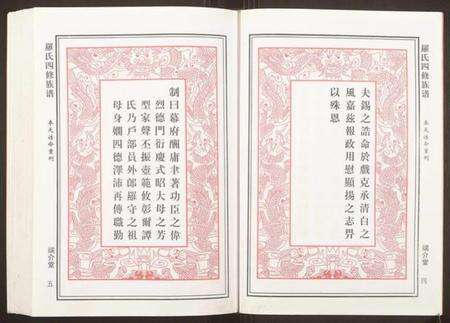 羅氏四修族谱
奉天誥命重刊
介堂
四
夫錫之誥命於戲克承清白之
風嘉兹報政用慰顯揚之志畀
以殊恩
制曰幕府酬庸聿著功臣之偉
烈德門衍慶式昭大母之芳
型家聲丕振壼範攸彰爾譚
氏乃戶部員外郎羅守之祖
母身嫻四德澤沛再傳職勤
羅氏四修族谱
奉天誥命重刊
介堂
五